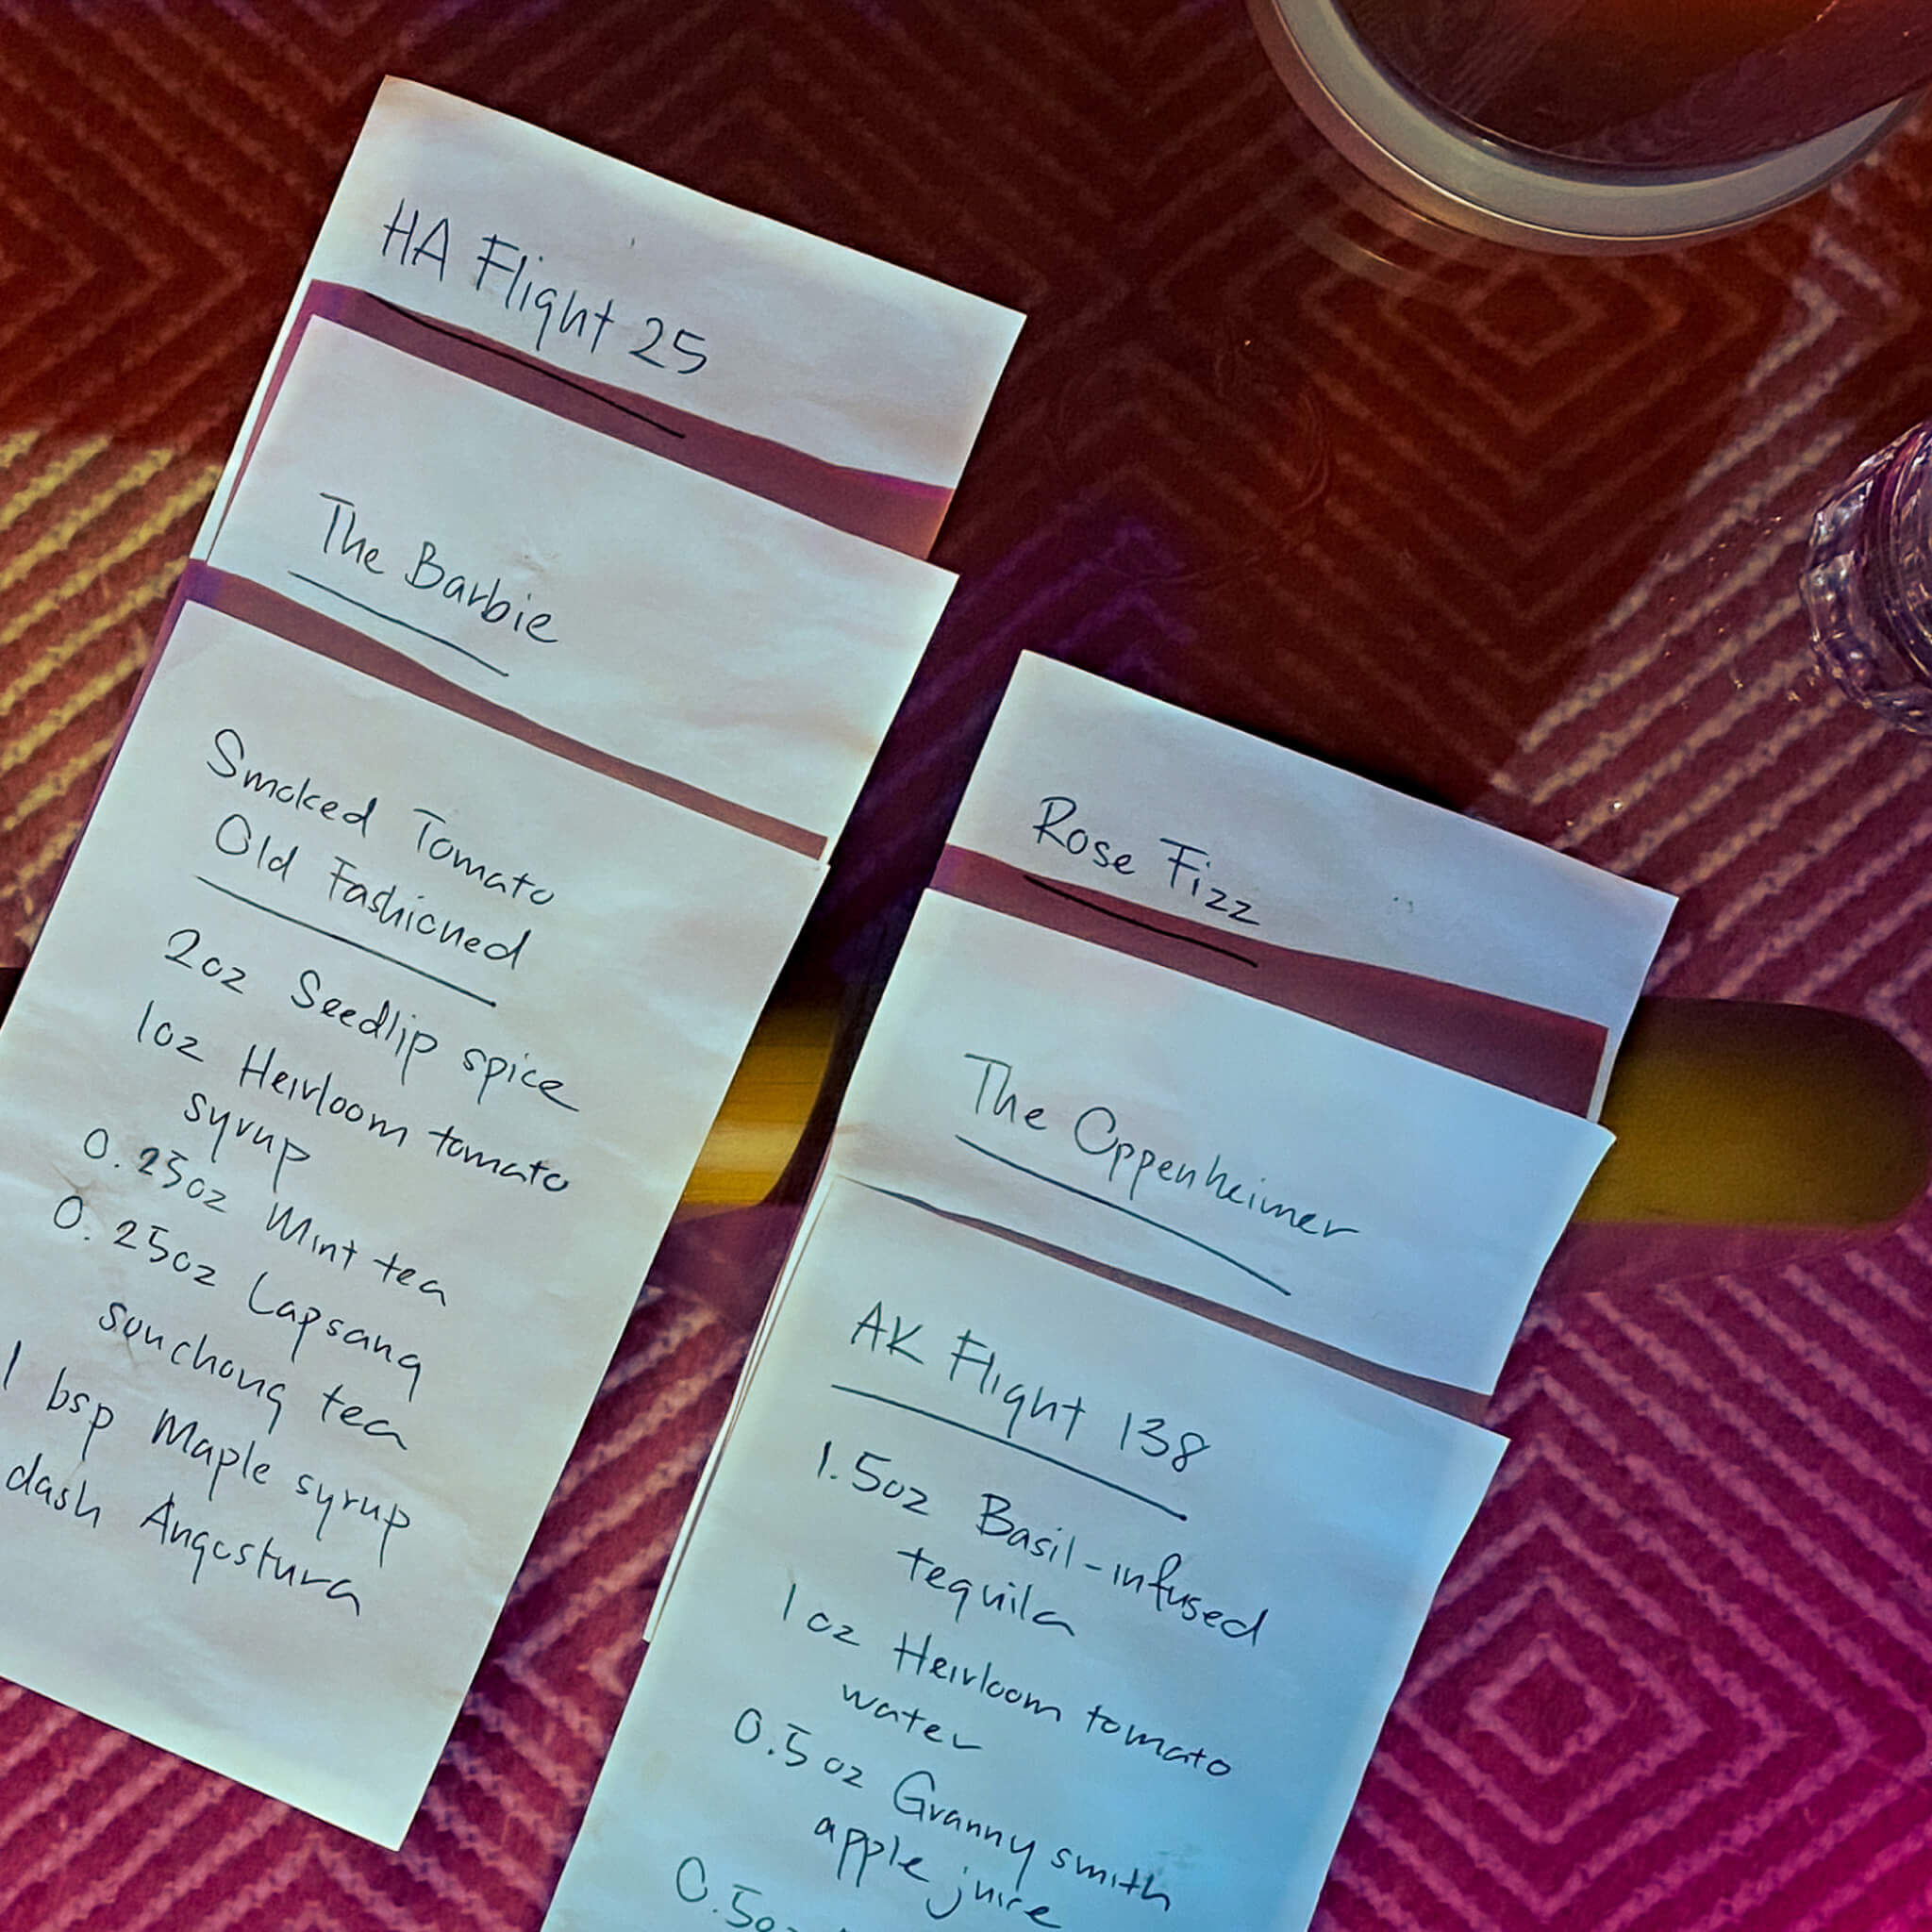 HA Flight 25
The Barbie
Smoked Tomato
Old Fashioned
2oz Seedlip spice
1oz Heirloom tomato
syrup
0.25oz Mint tea
0.25oz Lapsang
souchong tea
1 bsp Maple syrup
dash Angostura
Rose Fizz
The Oppenheimer
AK Flight 138
1.5oz Basil-infused
tequila
1oz Heirloom tomato
water
0.5oz Granny smith
apple juice
0.5oz